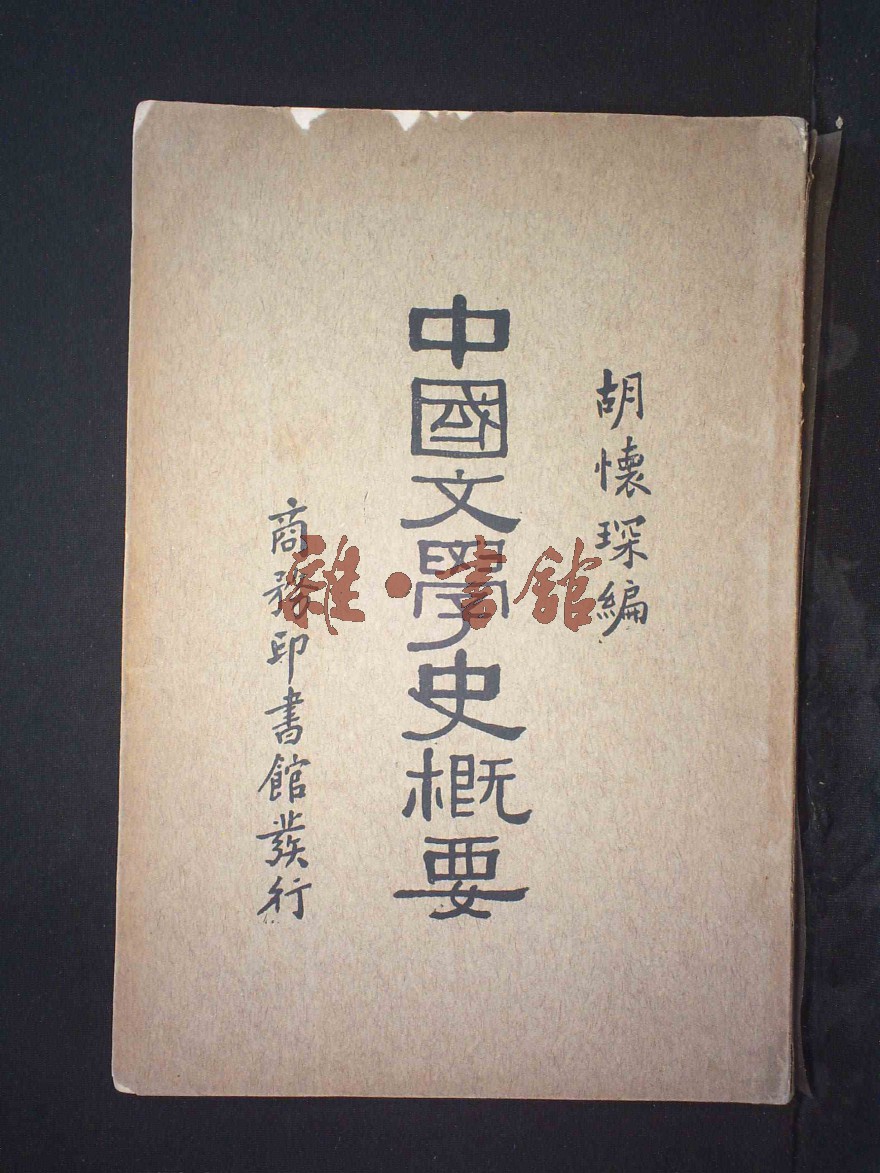 胡懷琛編
中國文學史概要
商務印書館發行
雜·書館